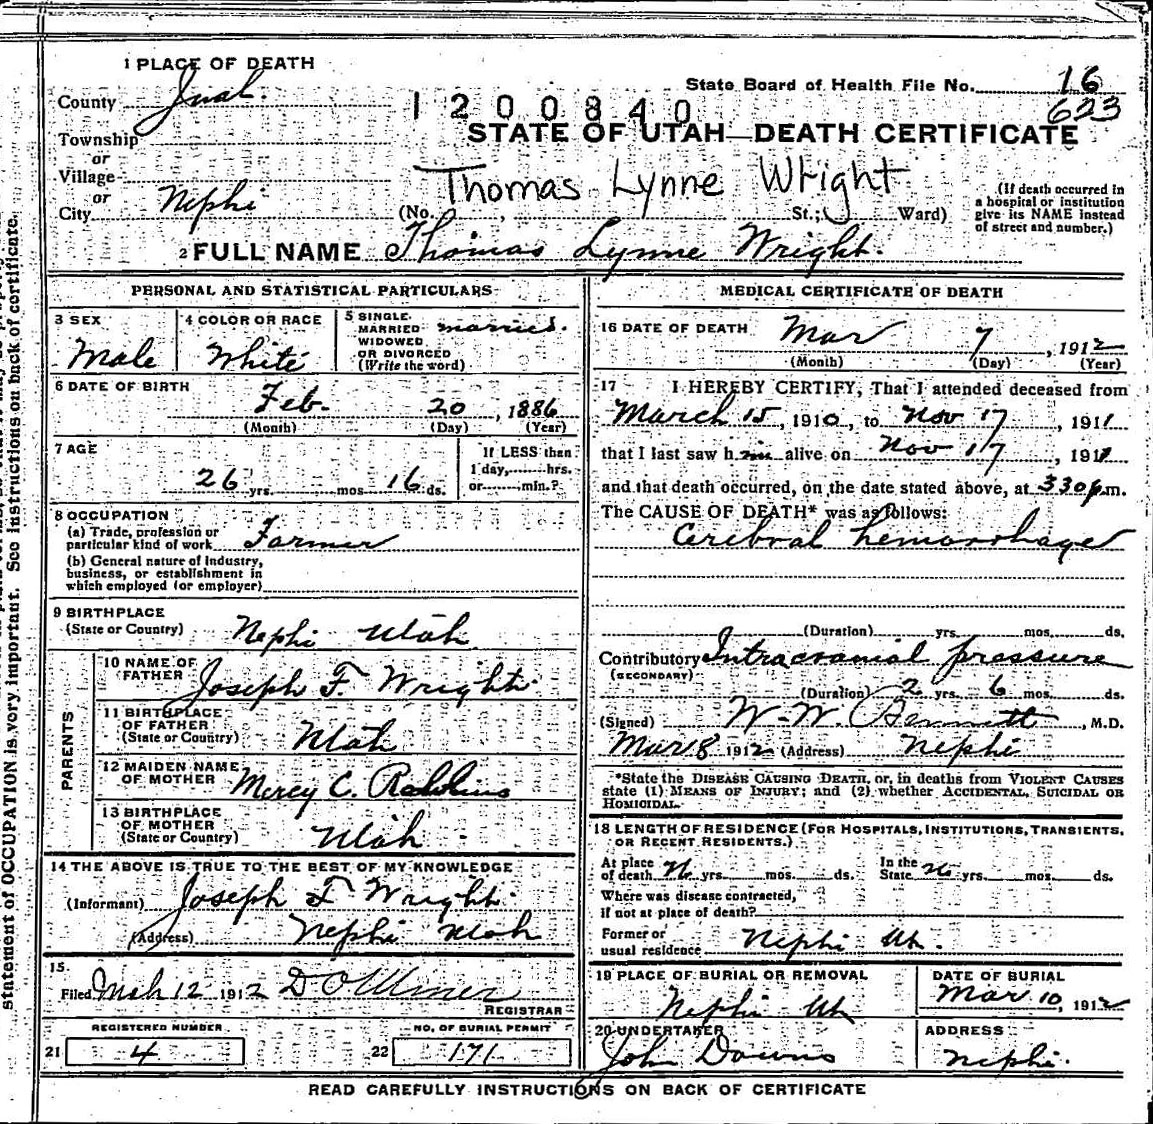 1 PLACE OF DEATH
County Juab
State Board of Health File No. 16
623
1200840
Township
or
Village
or
City Nephi
STATE OF UTAH—DEATH CERTIFICATE
Thomas Lynne Wright
(No. , St.; Ward)
(If death occurred in
a hospital or institution
give its NAME instead
of street and number.)
2 FULL NAME Thomas Lynne Wright.
PERSONAL AND STATISTICAL PARTICULARS
3 SEX
Male
4 COLOR OR RACE
White
5 SINGLE
MARRIED
WIDOWED
OR DIVORCED
(Write the word)
married.
6 DATE OF BIRTH
Feb. 20, 1886
(Month) (Day) (Year)
7 AGE
26 yrs. mos 16 ds.
If LESS than
1 day, hrs.
or min.?
8 OCCUPATION
(a) Trade, profession or
particular kind of work Farmer
(b) General nature of industry,
business, or establishment in
which employed (or employer)
9 BIRTHPLACE
(State or Country) Nephi Utah
PARENTS
10 NAME OF
FATHER Joseph F. Wright
11 BIRTHPLACE
OF FATHER
(State or Country) Utah
12 MAIDEN NAME
OF MOTHER Mercy C.
13 BIRTHPLACE
OF MOTHER
(State or Country) Utah
14 THE ABOVE IS TRUE TO THE BEST OF MY KNOWLEDGE
(Informant) Joseph F Wright
(Address) Nephi Utah
15
Filed Mch 12 1912
REGISTRAR
REGISTERED NUMBER
21 4
NO. OF BURIAL PERMIT
22 171
MEDICAL CERTIFICATE OF DEATH
16 DATE OF DEATH Mar 7, 1912
(Month) (Day) (Year)
17 I HEREBY CERTIFY, That I attended deceased from
March 15, 1910, to Nov 17, 1911
that I last saw h im alive on Nov 17, 1911
and that death occurred, on the date stated above, at 330 p.m.
The CAUSE OF DEATH* was as follows:
Cerebral hemorrhage
(Duration) yrs. mos. ds.
Contributory Intracranial pressure
(SECONDARY)
(Duration) 2 yrs. 6 mos. ds.
(Signed) W. W. Bennett, M.D.
Mar 8 1912 (Address) Nephi
*State the DISEASE CAUSING DEATH, or, in deaths from VIOLENT CAUSES
state (1) MEANS OF INJURY; and (2) whether ACCIDENTAL, SUICIDAL OR
HOMICIDAL.
18 LENGTH OF RESIDENCE (FOR HOSPITALS, INSTITUTIONS, TRANSIENTS,
OR RECENT RESIDENTS.)
At place
of death yrs. mos. ds.
In the
State yrs. mos. ds.
Where was disease contracted,
if not at place of death?
Former or
usual residence Nephi Ut.
19 PLACE OF BURIAL OR REMOVAL
Nephi Ut
DATE OF BURIAL
Mar 10, 1912
20 UNDERTAKER
John Downs
ADDRESS
Nephi.
READ CAREFULLY INSTRUCTIONS ON BACK OF CERTIFICATE
statement of OCCUPATION is very important. See instructions on back of certificate.